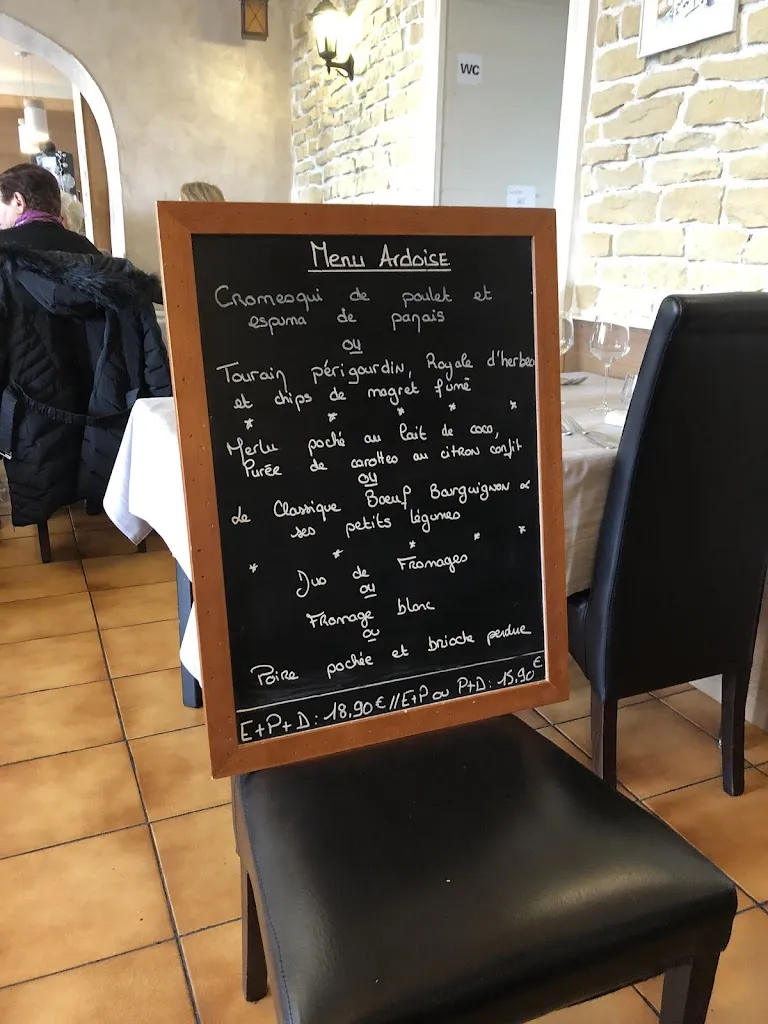 WC
Menu Ardoise
Cromesqui de poulet et
espuma de panais
ou
Tourain périgourdin, Royale d'herbes
et chips de magret fumé
* * * * *
Merlu poché au lait de coco,
Purée de carottes au citron confit
ou
Le Classique Bœuf Bourguignon &
ses petits légumes
* * * * *
Duo de Fromages
ou
Fromage blanc
ou
Poire pochée et brioche perdue
E+P+D : 18,90€ // E+P ou P+D : 15,90€